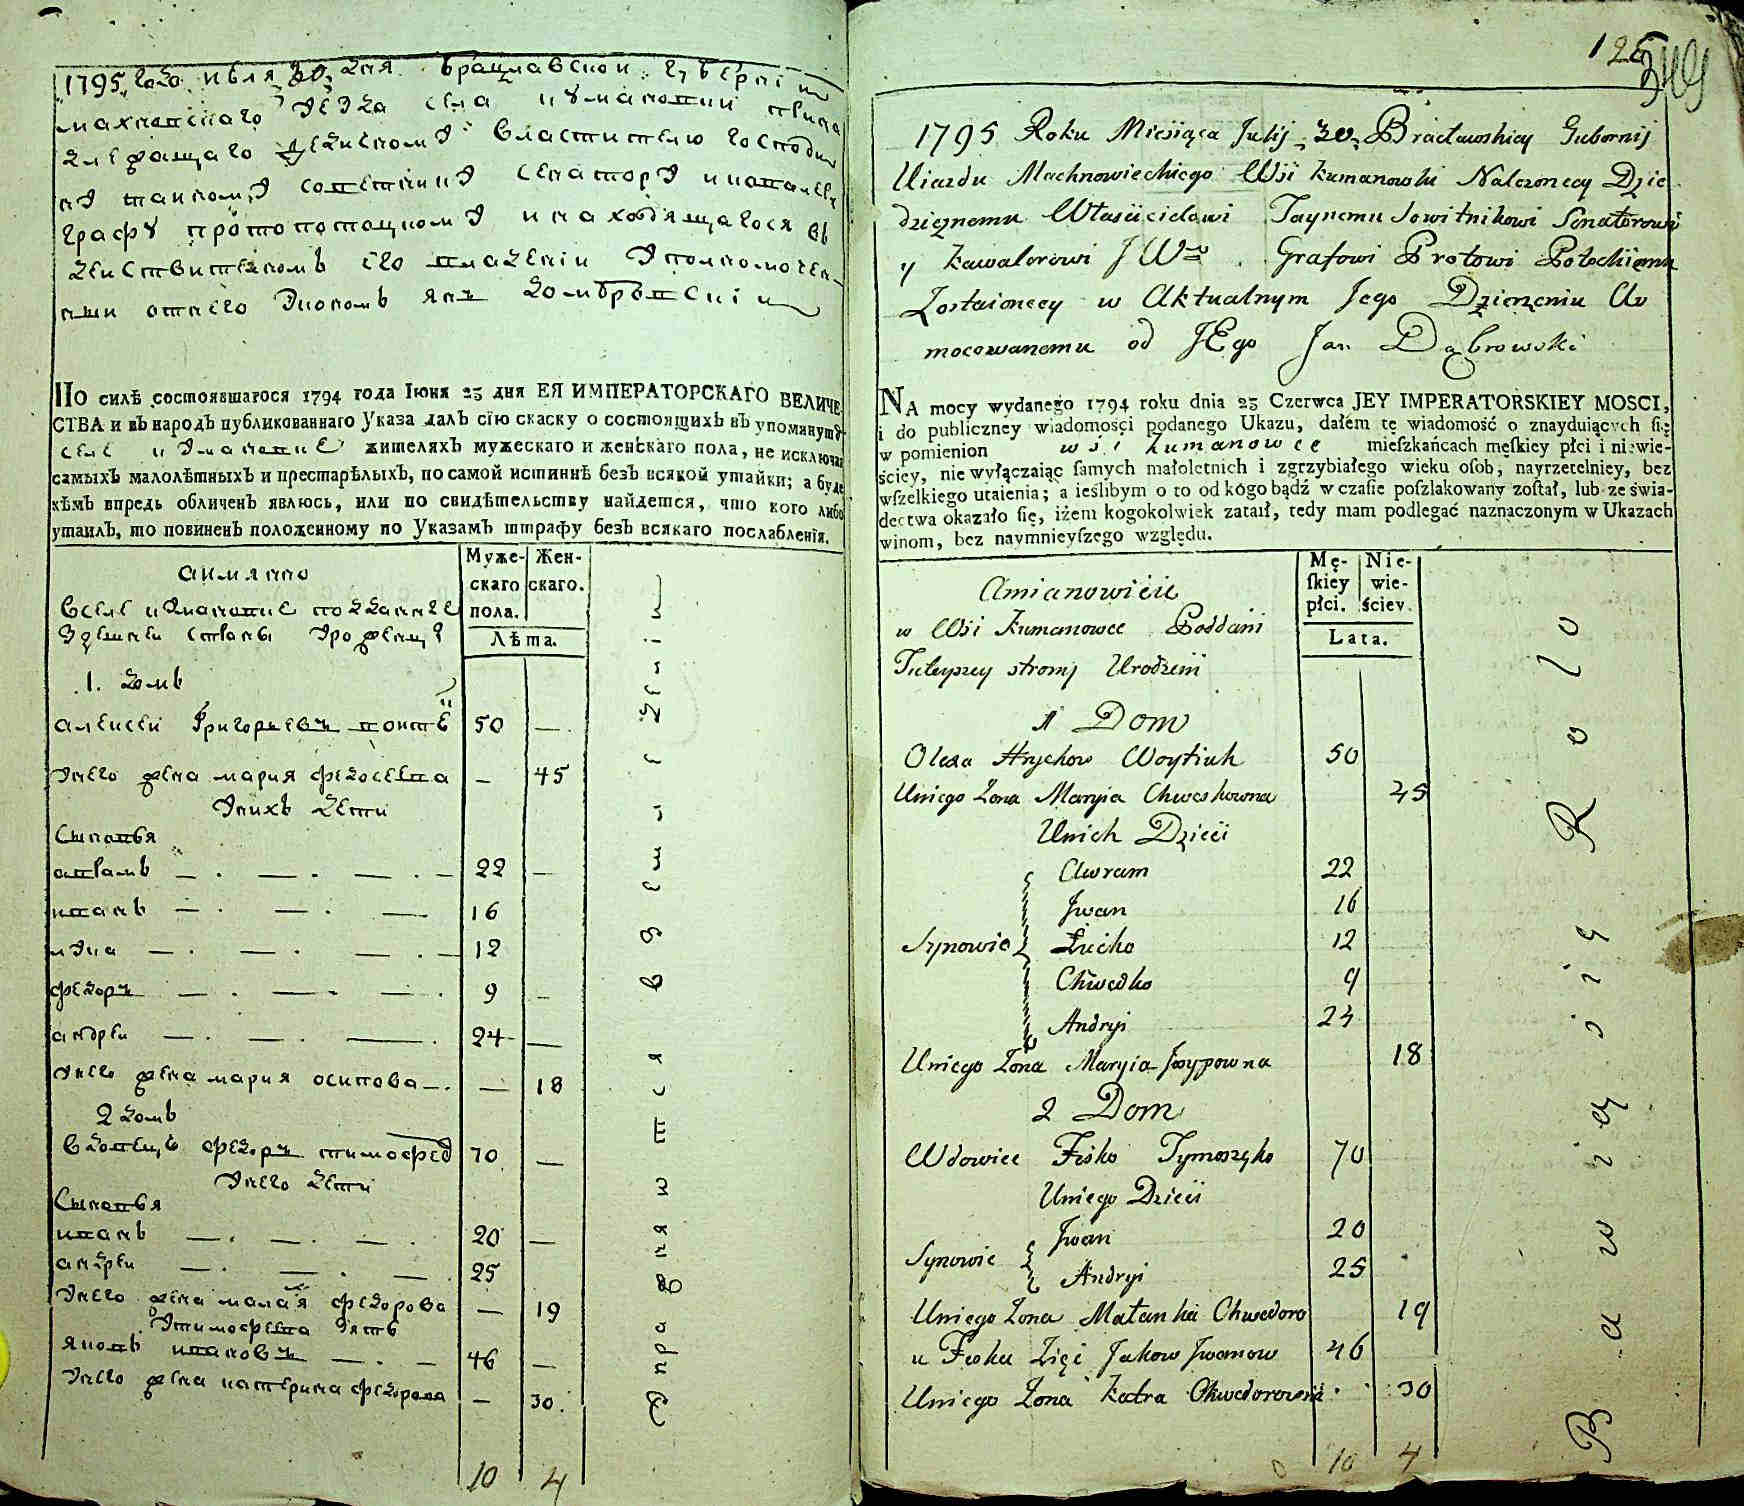 1795 года июля 30 дня Брацлавской губерніи
махновскаго уезда села кумановки
властителю господи
ну тайному советнику сенатору и кавалеру
графу протопотоцкому и находящагося въ
действителномъ его владеніи уполномочен
ный отнего економъ янъ домбровскій
ПО силѣ состоявшагося 1794 года Іюня 23 дня ЕЯ ИМПЕРАТОРСКАГО ВЕЛИЧЕ-
СТВА и въ народъ публикованнаго Указа далъ сїю скаску о состоящихъ въ упомянутѣ-
селе кумановке жителяхъ мужескаго и женскаго пола, не исключая
самыхъ малолѣтныхъ и престарѣлыхъ, по самой истиннѣ безъ всякой утайки; а буде
кѣмъ впредь обличенъ явлюсь, или по свидѣтельству найдется, что кого либо
утаилъ, то повиненъ положенному по Указамъ штрафу безъ всякаго послабленїя.
Муже-скаго пола. Жен-скаго.
Лѣта.
аимянно
вселе кумановке подданне
здешней страны урожденцы
1. домъ
алексей Григорьевъ войтъ 50 —
унего жена мария федосевна — 45
унихъ дети
Сыновья
аврамъ — . — . — . — 22 —
иванъ — . — . — 16
лука — . — . — . — 12
федоръ — . — . — . 9 —
андреи — . — . — . 24 —
унего жена мария осипова — . — 18
2 домъ
вдовецъ федоръ тимофеев 70 —
унего дети
Сыновья
иванъ — . — . — . — 20 —
андреи — . — . — 25
унего жена малая федорова — 19
утимофевна зять
яковъ ивановъ — . — 46 —
унего жена катерина федорова — 30.
10 4
Справедливостию
125
349
1795 Roku Miesiąca Julij 30 Bracławskiey Gubernij
Uiazdu Machnowieckiego Wsi Kumanowki Należoncey Dzie
dzicznemu Właścicielowi Taynemu Sowitnikowi Senatorowi
y Kawalerowi JWmu Grafowi Protowi Potockiemu
Zostaioncey w Aktualnym Jego Dzierzeniu Uu
mocowanemu od JEgo Jan Dąbrowski
NA mocy wydanego 1794 roku dnia 23 Czerwca JEY IMPERATORSKIEY MOSCI,
i do publiczney wiadomości podanego Ukazu, dałem tę wiadomość o znayduiących się
w pomienion wsi Kumanowce mieſzkańcach męſkiey płci i niewie-
ściey, nie wyłączaiąc ſamych małoletnich i zgrzybiałego wieku oſob, nayrzetelniey, bez
wſzelkiego utaienia; a ieślibym o to od kogo bądź w czaſie poſzlakowany zoſtał, lub ze świa-
dectwa okazało się, iżem kogokolwiek zataił, tedy mam podlegać naznaczonym w Ukazach
winom, bez naymnieyſzego względu.
Mę-ſkiey płci. Nie-wie-ściey.
Lata.
Amianowicie
w Wsi Kumanowce Poddani
Tuteyszey strony Urodzeni
1 Dom
Olexa Hrychow Woytiuk 50
Uniego Zona Maryia Chweskowna 45
Unich Dzieci
Synowie
Awram 22
Jwan 16
Łucko 12
Chwedko 9
Andryi 24
Uniego Zona Maryia Jozypowna 18
2 Dom
Wdowiec Fesko Tymoszko 70
Uniego Dzieci
Synowie
Jwan 20
Andryi 25
Uniego Zona Małanka Chwedoro 19
u Feska Zięć Jakow Jwanow 46
Uniego Zona Katra Chwedorowna 30
10 4
Bawią się Rolo